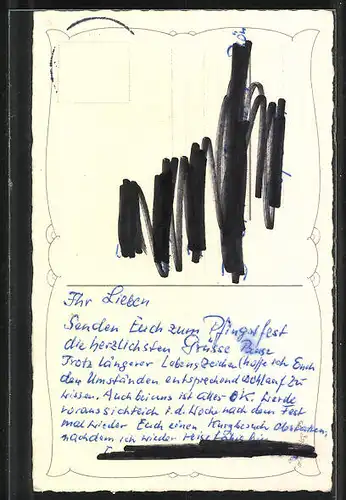 Ihr Lieben
Senden Euch zum Pfingstfest
die herzlichsten Grüsse
Trotz längerer Lebenszeichen hoffe ich Euch
den Umständen entsprechend wohlauf zu
wissen. Auch bei uns ist alles OK. Werde
voraussichtlich i. d. Woche nach dem Fest
mal wieder Euch einen Kurzbesuch abstatten,
nachdem ich wieder reise